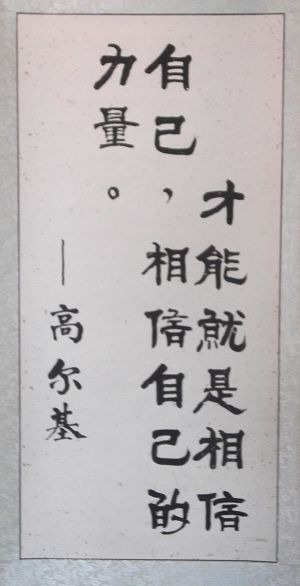 才能就是相信
自己，相信自己的
力量。
—高尔基